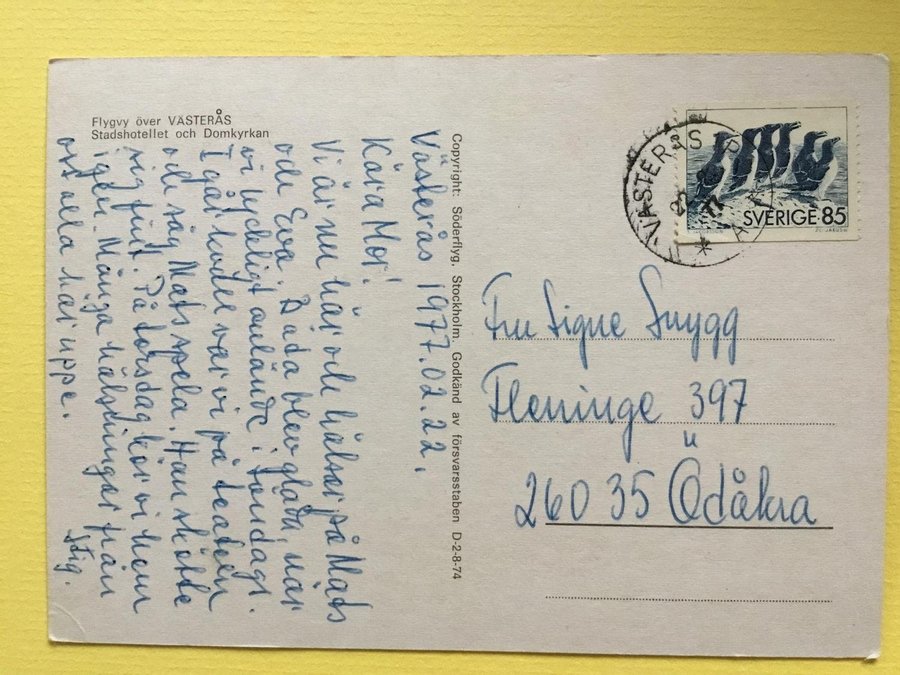 Flygvy över VÄSTERÅS
Stadshotellet och Domkyrkan
Västerås 1977.02.22.
Kära Mor!
Vi är nu här och hälsar på Mats
och Eva. Båda blev glada, när
vi lyckligt anlände i söndags.
I går kväll var vi på teatern
och såg Mats spela. Han skötte
sig fint. På torsdag kör vi hem
igen. Många hälsningar från
oss alla här uppe.
Stig.
Copyright: Söderflyg, Stockholm. Godkänd av försvarsstaben D-2-8-74
VÄSTERÅS
77
SVERIGE 85
Fru Signe Snygg
Fleninge 397
260 35 Ödåkra